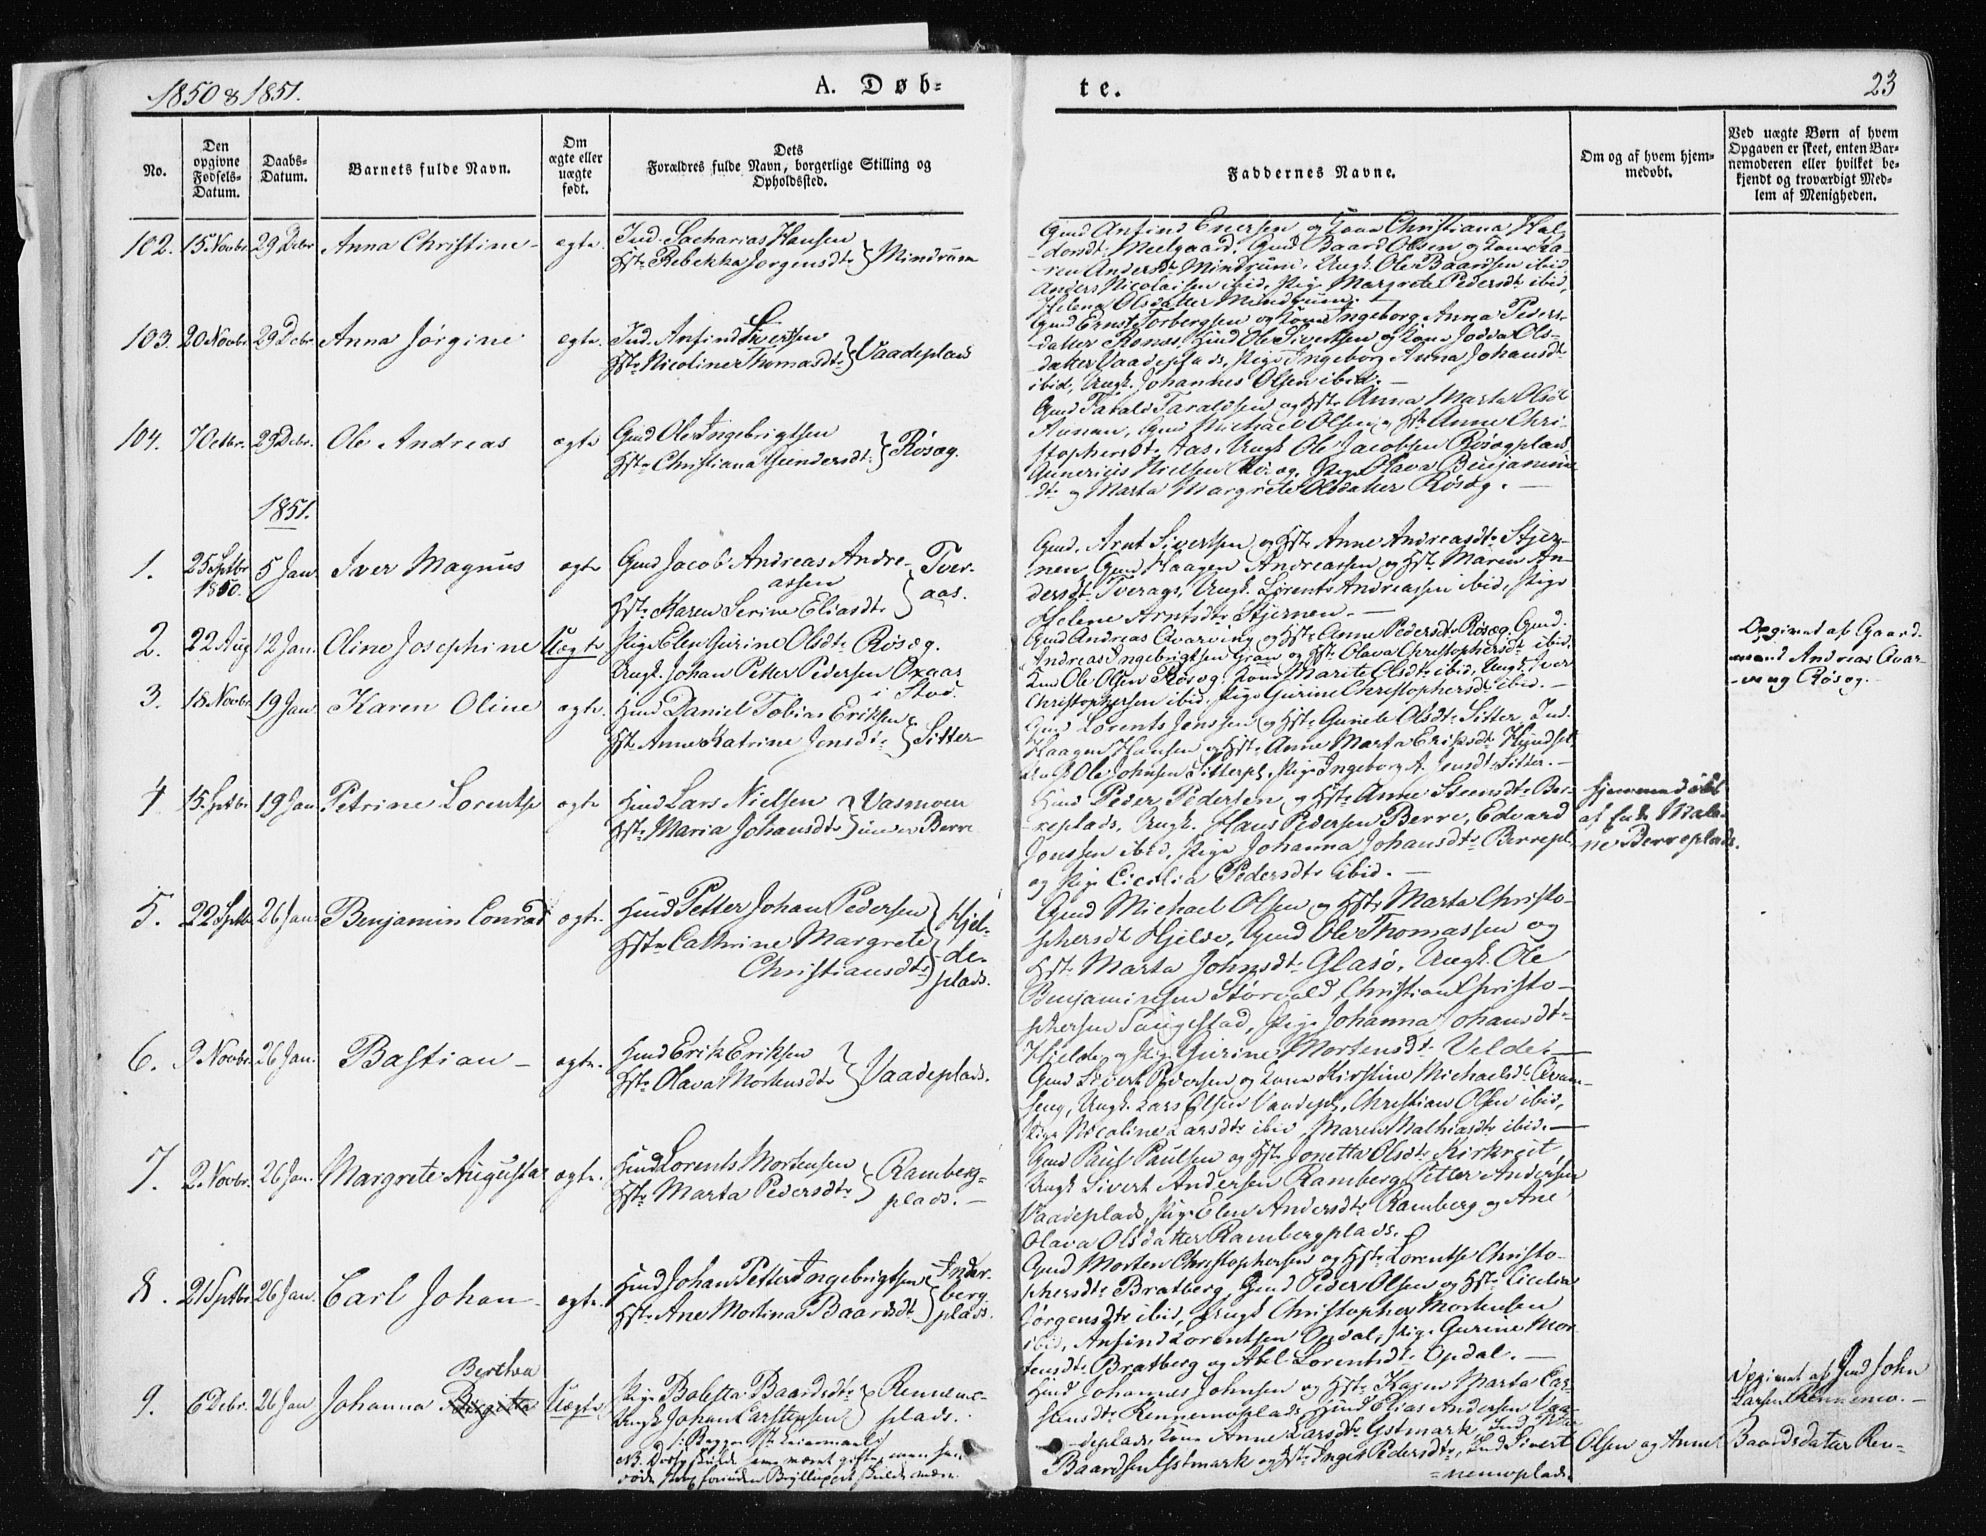 1850 & 1851.
A. Døb-
te.
23
No.
Den opgivne Fødsels-Datum.
Daabs-Datum.
Barnets fulde Navn.
Om ægte eller uægte født.
Dets
Forældres fulde Navn, borgerlige Stilling og
Opholdssted.
Faddernes Navne.
Om og af hvem hjem-
medøbt.
Ved uægte Børn af hvem
Opgaven er skeet, enten Bar-
nemoderen eller hvilket be-
kjendt og troværdigt Med-
lem af Menigheden.
102. 15 Novbr 29 Debr Anna Christine ægte Ind. Sacharias Hansen
Hst. Rebekka Jørgensdt. } Mindrum
Gmd Anfind Enersen og Kone Christiana Hal-
dorsdt. Melgaard, Gmd Baard Olsen og Kone Ka-
ren Andersdt. Mindrum, Ungk. Ole Baardsen ibid,
Anders Nicolaisen ibid, Pige Margrete Pedersdt. ibid,
Helena Olsdatter Mindrum.
103. 20 Novbr 29 Debr Anna Jørgine ægte. Ind. Anfind Sivertsen
Hst. Nicoline Thomasdt. } Vaadeplads
Gmd Ernst Torbergsen og Kone Ingeborg Anna Peders-
datter Romos, Hmd Ole Sivertsen og Kone Olsdatter
datter Vaadeplads, Pige Ingeborg Anna Johansdt.
ibid, Ungk. Johannes Olsen ibid.
104. 7 Octbr. 29 Debr. Ole Andreas ægte Gmd Ole Ingebrigtsen
Hst. Christiana Gundersdt. } Røsæg.
Gmd Tarald Taraldsen og Hst. Anna Marta Olsdt.
Aunan, Gmd Michael Olsen og Hst. Anne Chri-
stophersdt. Aas, Ungk Ole Jacobsen Røsægplads,
Nielsen Røsæg, Pige Olava Benjamins-
dt. og Marta Margrete Olsdatter Røsæg.
1851.
1. 25 Septbr 1850. 5 Jan Iver Magnus ægte Gmd Jacob Andreas Andre-
assen
Hst. Karen Serine Eliasdt. } Tver-
aas.
Gmd. Arnt Sivertsen og Hst. Anne Andreasdt. Stjer-
nen, Gmd Haagen Andreassen og Hst. Maren An-
dersdt. Tveraas, Ungk. Lorents Andreassen ibid, Pige
Helene Arntsdt. Stjernen.
2. 22 Aug 12 Jan. Oline Josephine Uægte Pige Elen Gurine Olsdt. Røsæg.
Ungk. Johan Petter Pedersen Oxaas
i Stod.
Gmd Andreas Qvarving og Hst. Anne Pedersdt. Røsæg, Gmd.
Andreas Ingebrigtsen Gran og Hst. Olava Christophersdt. ibid,
Hmd Ole Olsen Røsæg, Kone Marite Olsdt. ibid, Ungk. Iver
Christophersen ibid, Pige Gurine Christophersdt. ibid.
Opgivet af Gaard-
mand Andreas Qvar-
ving Røsæg.
3. 18 Novbr 19 Jan Karen Oline ægte. Hmd Daniel Tobias Eriksen
Hst. Anne Katrine Jensdt. } Sitter
Gmd Lorents Jenssen og Hst. Gunele Olsdt. Sitter, Ind.
Haagen Hansen og Hst. Anne Marta Eriksdt.
Ungk Ole Johnsen Sitterpl., Pige Ingeborg A. Jensdt. Sitter.
4 15 Septbr 19 Jan Petrine Lorentse ægte Hmd Lars Nielsen
Hst. Maria Johansdt. } Vasmoen
under Berre
Hmd Peder Pedersen og Hst. Anne Steensdt. Ber-
replads, Ungk. Hans Pedersen Berre, Edvard
Jonssen ibid, Pige Johanna Johansdt. Berrepl.
og Pige Cicilia Pedersdt. ibid.
Hjemmedøbt
af Male-
ne Berreplads.
5. 22 Septbr 26 Jan. Benjamin Conrad ægte. Hmd Petter Johan Pedersen
Hst. Cathrine Margrete
Christiansdt. } Hjel-
de-
plads.
Gmd Michael Olsen og Hst. Marta Christo-
phersdt Hjelde, Gmd Ole Thomassen og
Hst. Marta Johnsdt. Glasø, Ungk. Ole
Benjaminsen Størvold, Christian Christo-
phersen Saugestad, Pige Johanna Johansdt.
Hjelde og Pige Gurine Mortensdt. Velde.
6. 9 Novbr. 26 Jan. Bastian ægte. Hmd Erik Eriksen
Hst. Olava Mortensdt. } Vaadeplads.
Gmd Sivert Pedersen og Kone Kirstine Michaelsdt. Qvam-
seng, Ungk. Lars Olsen Vaadepl., Christian Olsen ibid,
Pige Nicoline Larsdt. ibid, Maren Mathiasdt. ibid.
7. 2 Novbr. 26 Jan. Margrete Augusta ægte. Hmd Lorents Mortensen
Hst. Marta Pedersdt. } Ramberg-
plads.
Gmd Paul Paulsen og Hst. Jonetta Olsdt. Kirkreit
Ungk Sivert Andersen Ramberg, Petter Andersen
Vaadeplads, Pige Elen Andersdt. Ramberg og Ane
Olava Olsdatter Rambergplads.
8. 21 Septbr 26 Jan. Carl Johan ægte. Hmd Johan Petter Ingebrigtsen
Hst. Ane Mortina Baardsdt. } Inder-
berg
plads.
Gmd Morten Christophersen og Hst. Lorentse Christo-
phersdt. Bratberg, Gmd Peder Olsen og Hst. Cicelia
Jørgensdt. ibid, Ungk Christopher Mortensen
ibid, Anfind Lorentsen Opdal, Pige Gurine Mor-
tensdt. Bratberg og Abel Lorentsdt. Opdal.
9. 6 Debr. 26 Jan Johanna Birgitta Berthea Uægte Pige Boletta Baardsdt.
Ungk Johan Carstensen } Rennemo-
plads.
Hmd Johannes Johnsen og Hst. Karen Marta Car-
stensdt. Rennemoplads, Hmd Elias Andersen Vaa-
deplads, Kone Anne Larsdt. Gstmark, Ind
Olsen og Anne Baardsdatter Ren-
nemoplads.
Baardsen Gstmark og Hst. Inger Pedersdt., Ind Sivert
Opgivet af Ind John
Larsen Rennemo.